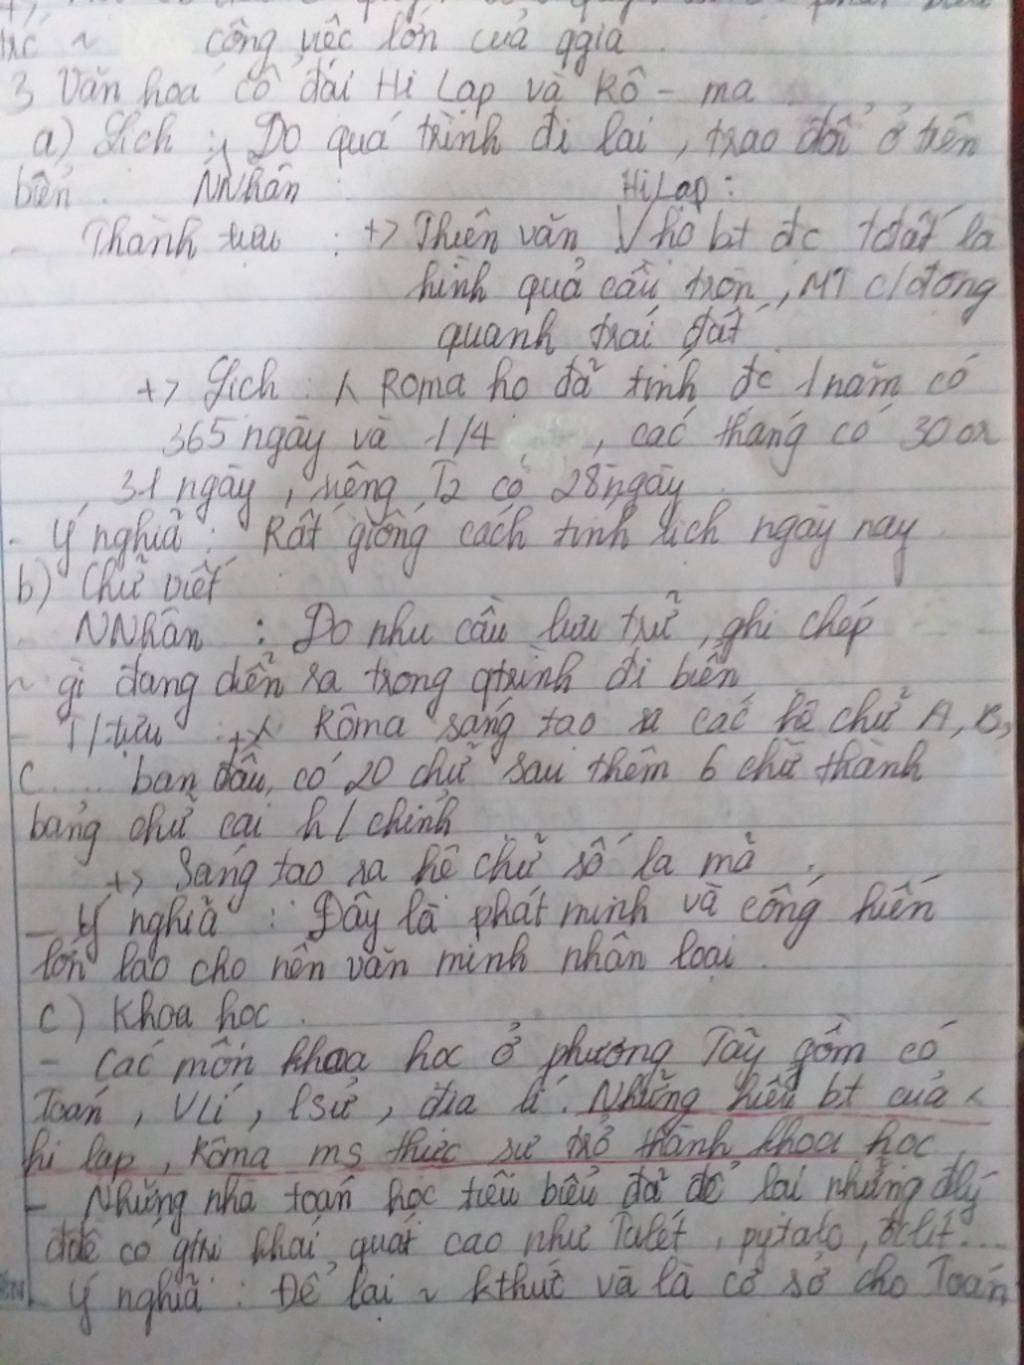 công việc lớn của qgia
3 Văn hoá cổ đại Hi Lạp và Rô - ma
a) Lịch : Do quá trình đi lại, trao đổi ở trên
biển. NNhân : Hi Lạp :
- Thành tựu : +> Thiên văn họ bt đc tđất là
hình quả cầu tròn, MT c/động
quanh trái đất
+> Lịch : Roma họ đã tính đc 1 năm có
365 ngày và 1/4 , các tháng có 30 or
31 ngày, riêng T2 có 28 ngày
- Ý nghĩa : Rất giống cách tính lịch ngày nay
b) Chữ viết
- NNhân : Do nhu cầu lưu trữ, ghi chép
~ gì đang diễn ra trong qtrình đi biển
- T/tựu : + Rôma sáng tạo ra các hệ chữ A, B,
C..... ban đầu, có 20 chữ sau thêm 6 chữ thành
bảng chữ cái h/chỉnh
+> Sáng tạo ra hệ chữ số la mã .
- Ý nghĩa : Đây là phát minh và cống hiến
lớn lao cho nền văn minh nhân loại .
c) Khoa học .
- Các môn khoa học ở phương Tây gồm có
Toán, VLí, lSử, địa lí. Những hiểu bt của <
hi lạp, Rôma ms thực sự trở thành khoa học
- Những nhà toán học tiêu biểu đã để lại những đlý
đđề có gtrị khái quát cao như Talét, pytago, ơclit....
- Ý nghĩa : Để lại ~ kthức và là cơ sở cho Toán